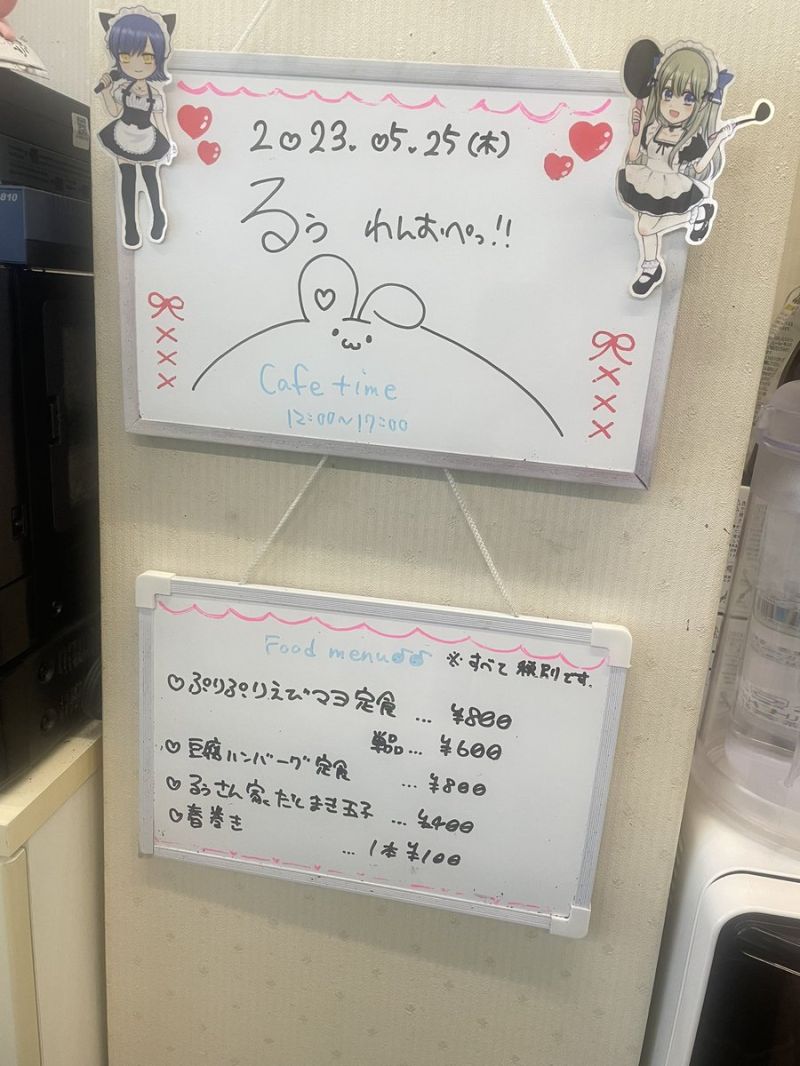 2023.05.25(木)
るぅ わんおぺっ!!
Cafe time
12:00~17:00
Food menu♫♫ ※すべて税別です。
♡ぷりぷりえびマヨ定食 … ¥800
単品… ¥600
♡豆腐ハンバーグ定食 … ¥800
♡るぅさん家、だしまき玉子 … ¥400
♡春巻き
… 1本 ¥100
810